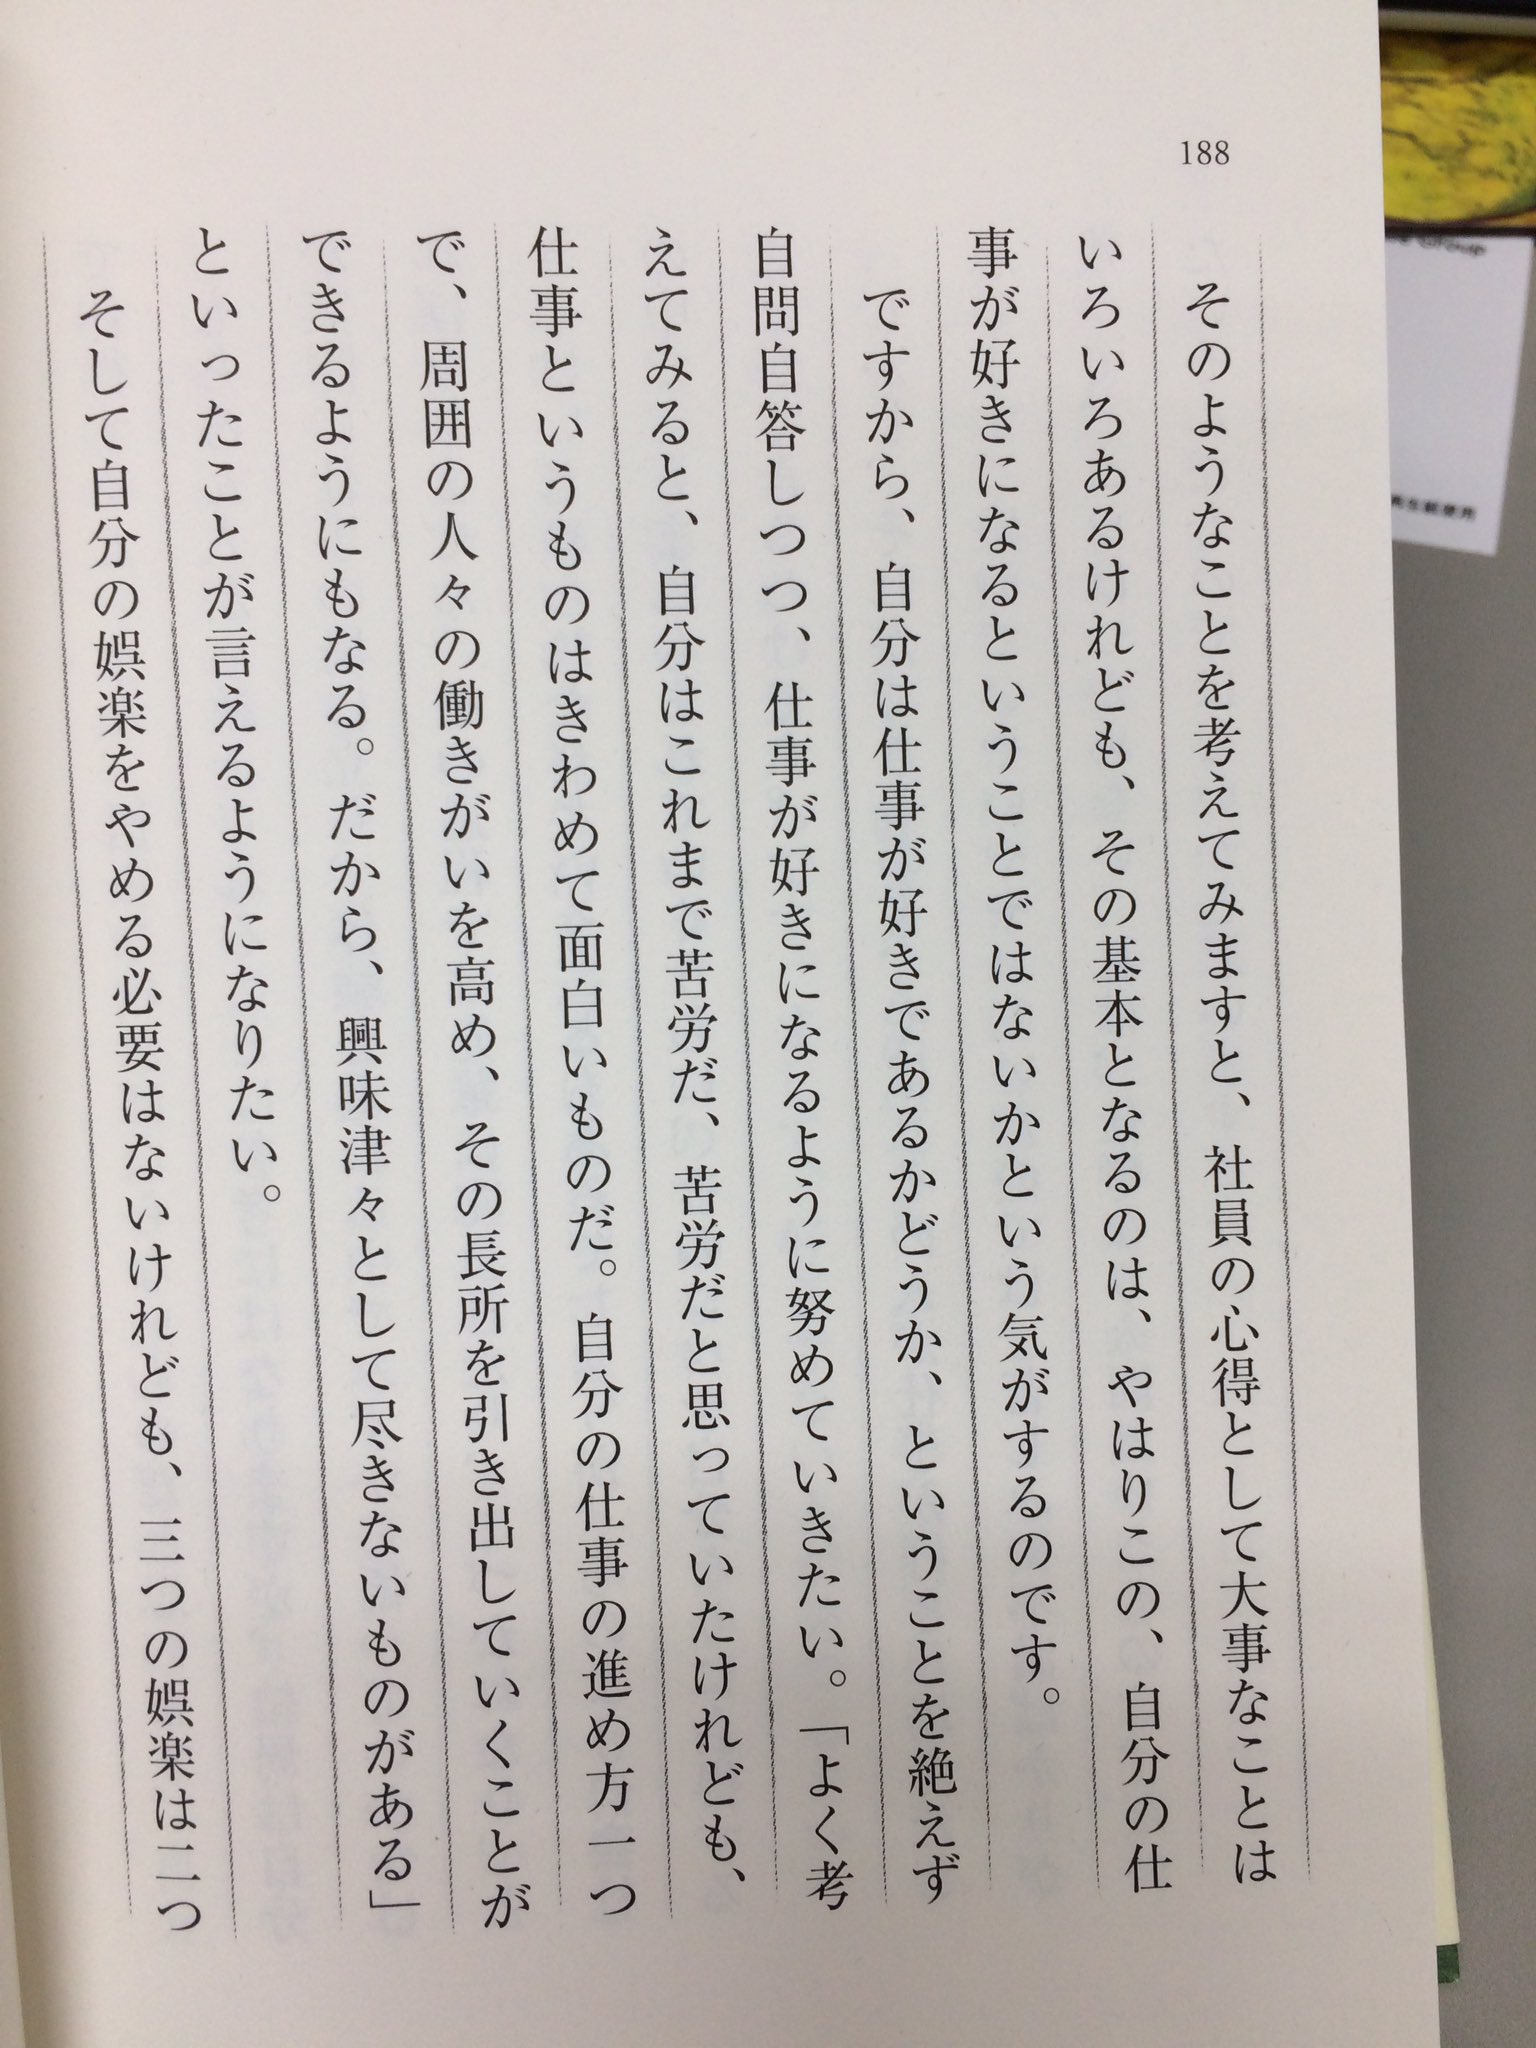 188
そのようなことを考えてみますと、社員の心得として大事なことは
いろいろあるけれども、その基本となるのは、やはりこの、自分の仕
事が好きになるということではないかという気がするのです。
ですから、自分は仕事が好きであるかどうか、ということを絶えず
自問自答しつつ、仕事が好きになるように努めていきたい。「よく考
えてみると、自分はこれまで苦労だ、苦労だと思っていたけれども、
仕事というものはきわめて面白いものだ。自分の仕事の進め方一つ
で、周囲の人々の働きがいを高め、その長所を引き出していくことが
できるようにもなる。だから、興味津々として尽きないものがある」
といったことが言えるようになりたい。
そして自分の娯楽をやめる必要はないけれども、三つの娯楽は二つ
Group